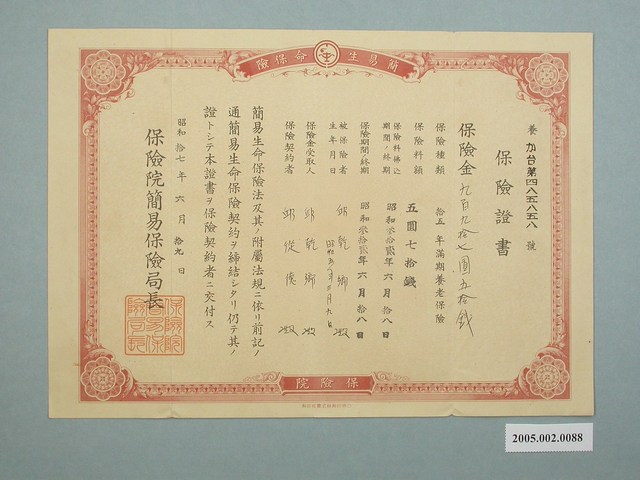 簡易生命保險
養か台第四八五八五八號
保險證書
保險金九百九拾七圓五拾錢
保險種類 拾五年滿期養老保險
保險料額 五圓七拾錢
保險料拂込期間ノ終期 昭和參拾貳年六月拾八日
保險期間ノ終期 昭和參拾貳年六月拾八日
被保險者 邱乾
生年月日
保險金受取人 邱乾
保險契約者 邱從
簡易生命保險法及其ノ附屬法規ニ依リ前記ノ
通簡易生命保險契約ヲ締結シタリ仍テ其ノ
證トシテ本證書ヲ保險契約者ニ交付ス
昭和拾七年六月拾九日
保險院簡易保險局長
保險院簡易保險局長
保險院
2005.002.0088